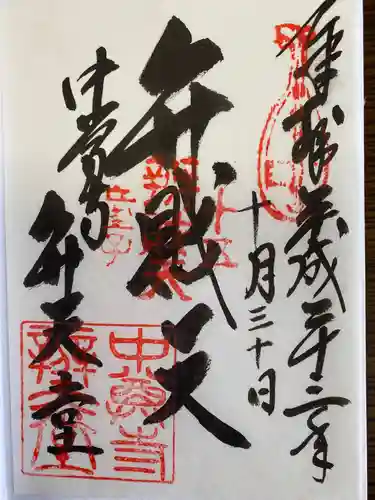 奉拝 平成二十二年
十月三十日
弁財天
中尊寺
弁天堂
中尊寺